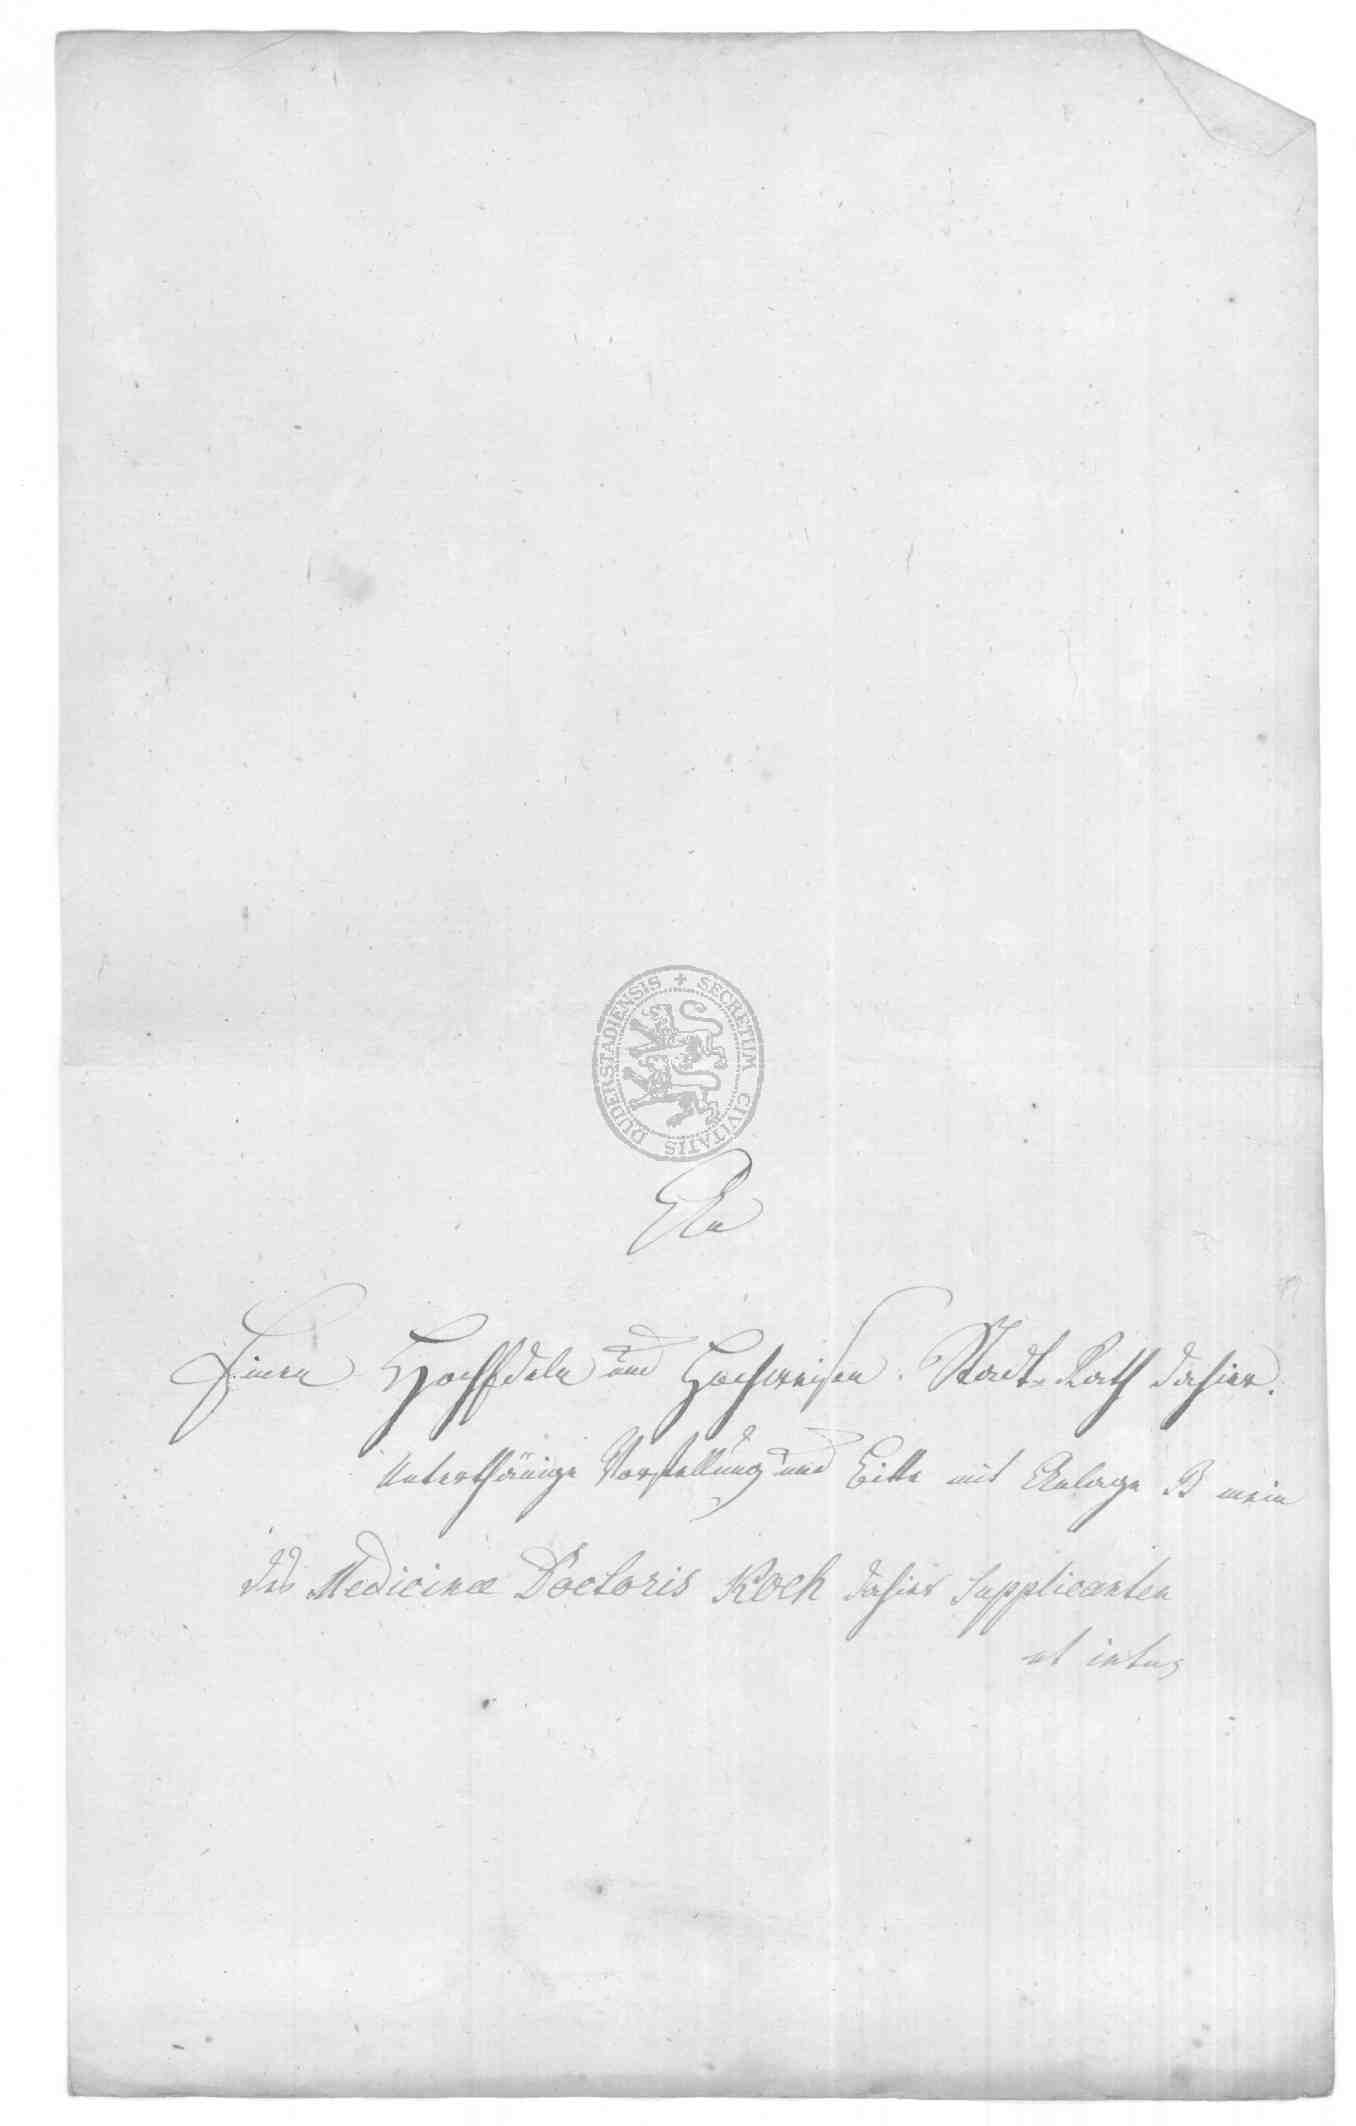 SECRETUM CIVITATIS DUDERSTADIENSIS
An
Einen HochEdeln und Hochweisen Stadt-Rath dahier.
Unterthänige Vorstellung und Bitte mit Anlage B mein
des Medicinæ Doctoris Koch dahier Supplicanten
ut intus